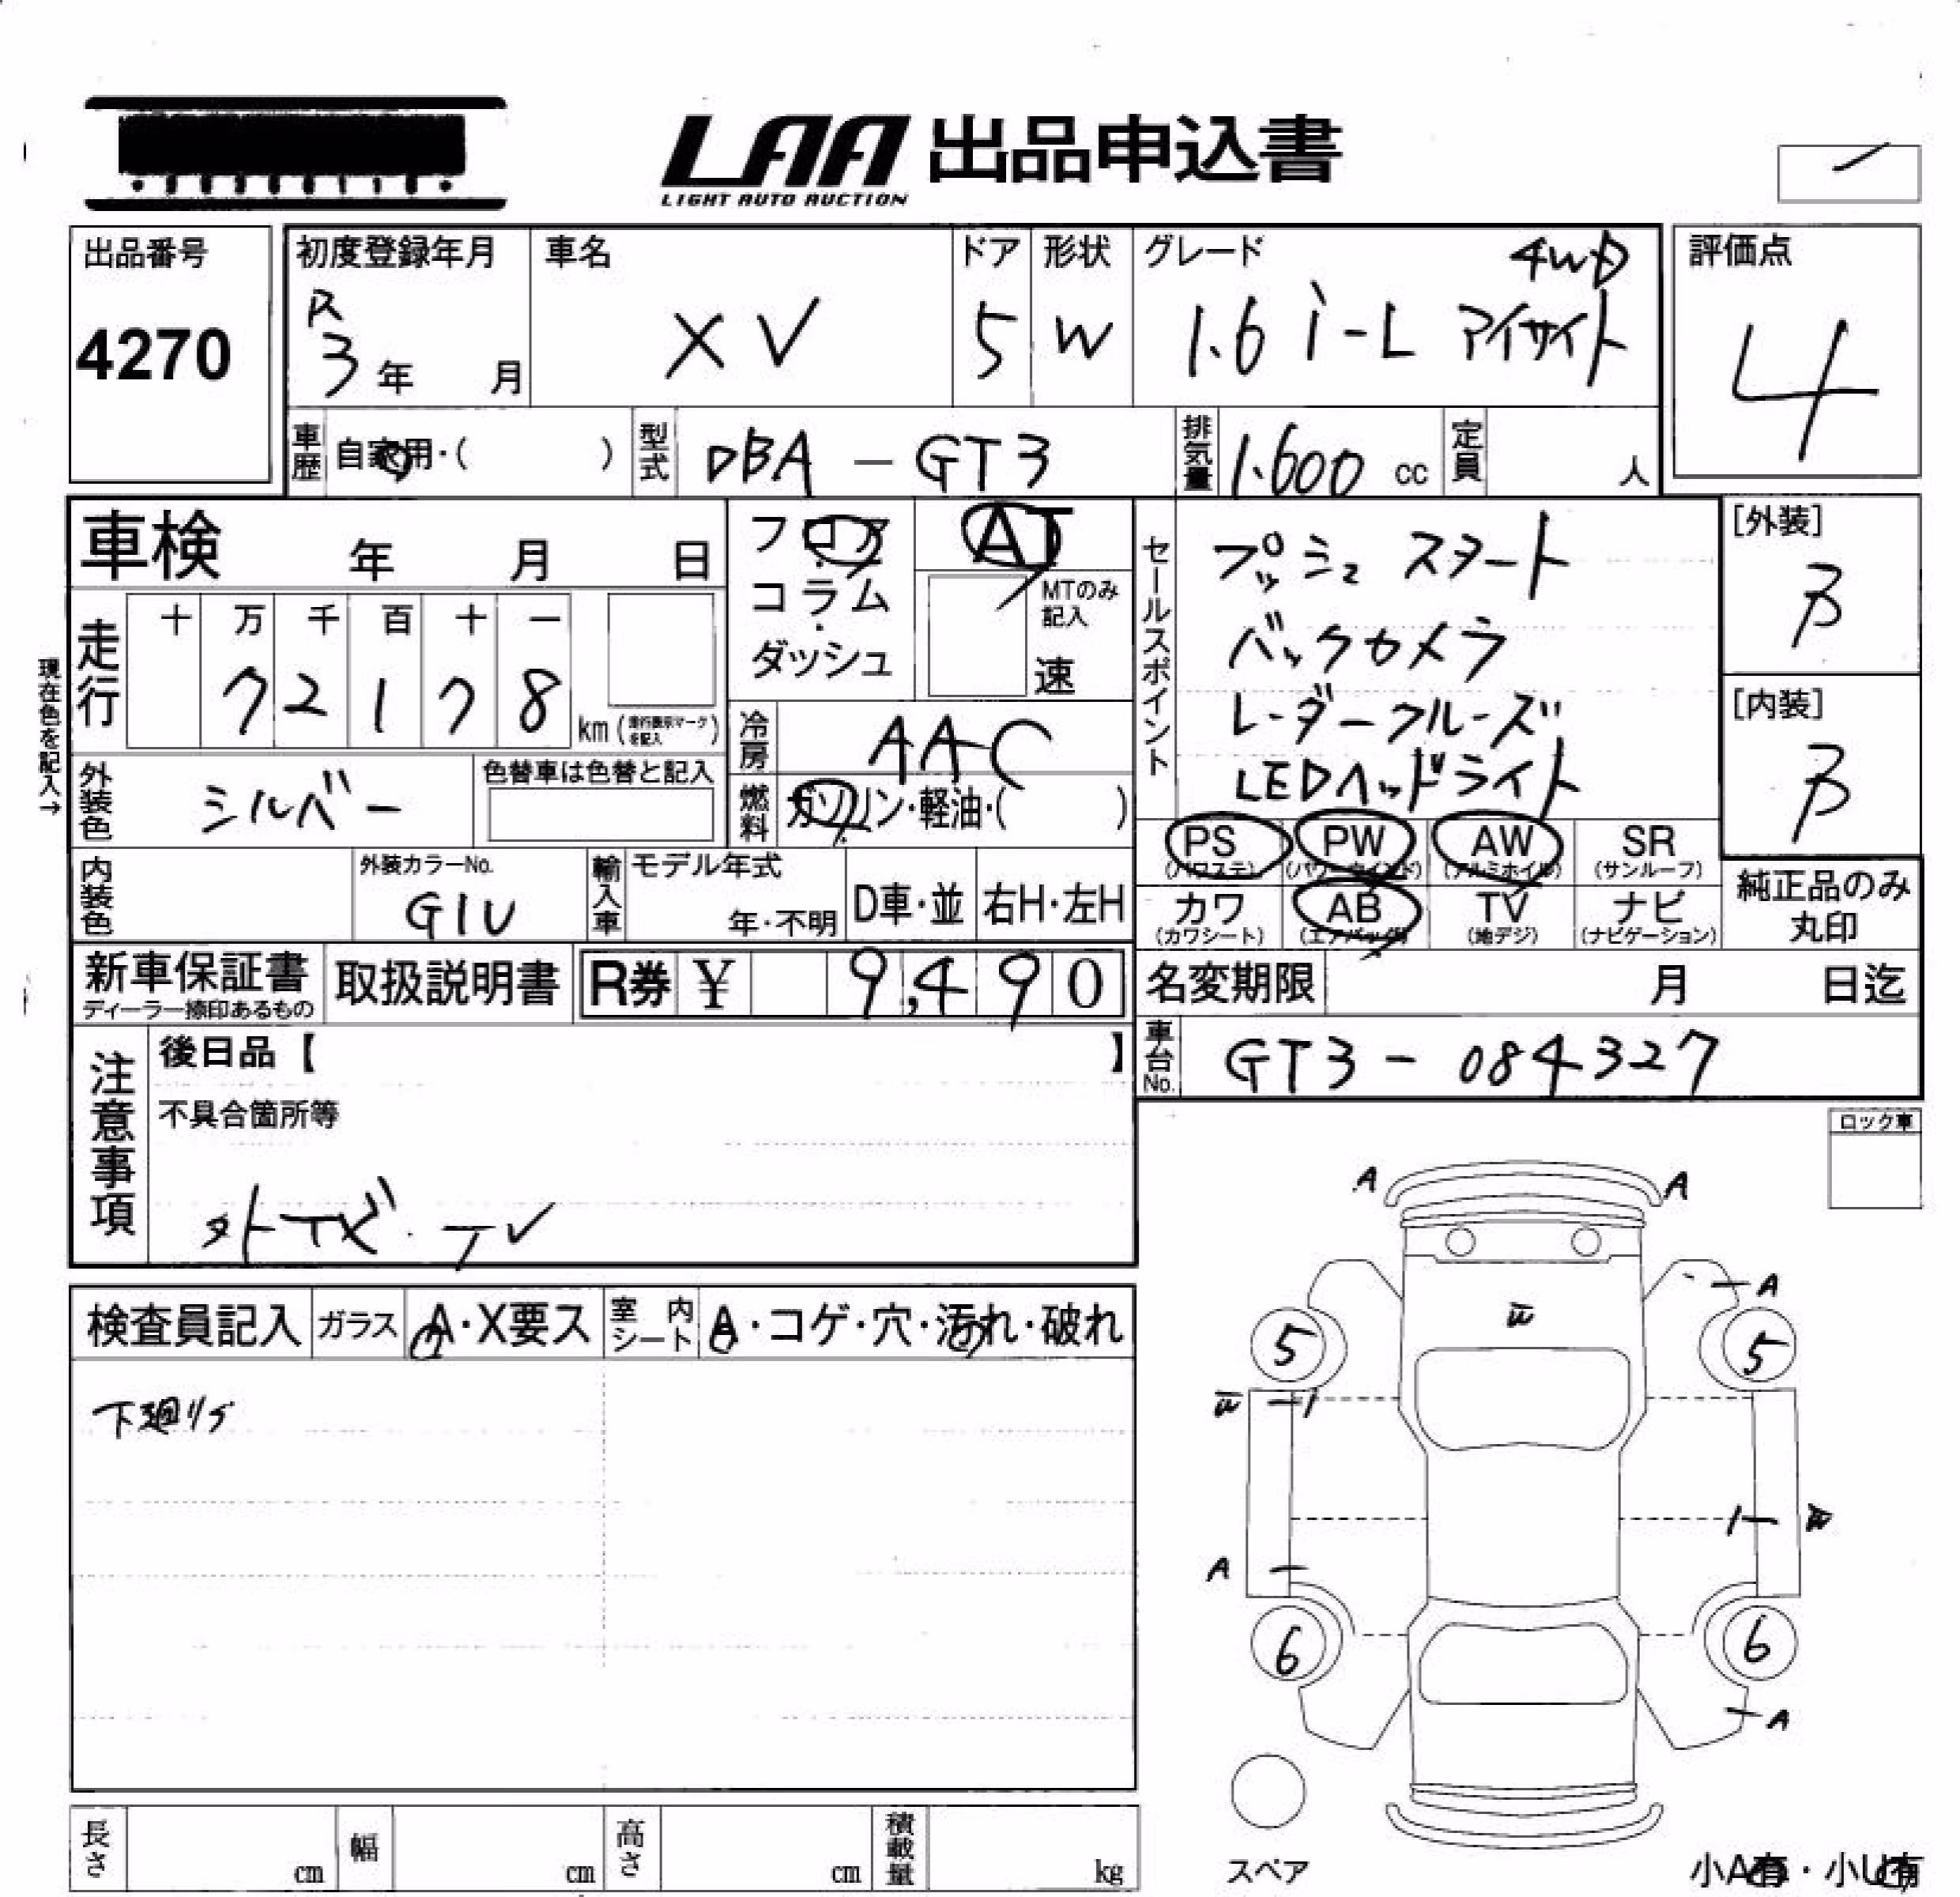 LAA 出品申込書
LIGHT AUTO AUCTION
出品番号
4270
初度登録年月
R
3年 月
車名
XV
ドア
5
形状
W
グレード
4WD
1.6 i-L アイサイト
評価点
4
車歴 自家用・( )
型式 DBA - GT3
排気量 1.600 cc
定員 人
車検 年 月 日
フロア
コラム
ダッシュ
AT
MTのみ記入
速
走行
十 万 千 百 十 一
7 2 1 7 8
km (走行表示マークを記入)
現在色を記入→
冷房 AAC
燃料 ガソリン・軽油・( )
外装色 シルバー
色替車は色替と記入
内装色
外装カラーNo.
G1U
輸入車 モデル年式
年・不明
D車・並
右H・左H
セールスポイント
プッシュスタート
バックカメラ
レーダークルーズ
LEDヘッドライト
[外装]
B
[内装]
B
PS
(パワステ)
PW
(パワーウインド)
AW
(アルミホイル)
SR
(サンルーフ)
カワ
(カワシート)
AB
(エアバッグ)
TV
(地デジ)
ナビ
(ナビゲーション)
純正品のみ
丸印
新車保証書
ディーラー捺印あるもの
取扱説明書
R券 ¥ 9,490
名変期限 月 日迄
車台No. GT3 - 084327
注意事項
後日品【 】
不具合箇所等
外ナビ・TV
ロック車
検査員記入
ガラス A・X要ス
室内シート A・コゲ・穴・汚れ・破れ
下廻りサ
A A
A
W
5 5
W
W
A
6 6
A
スペア
長さ cm
幅 cm
高さ cm
積載量 kg
小A有・小U有